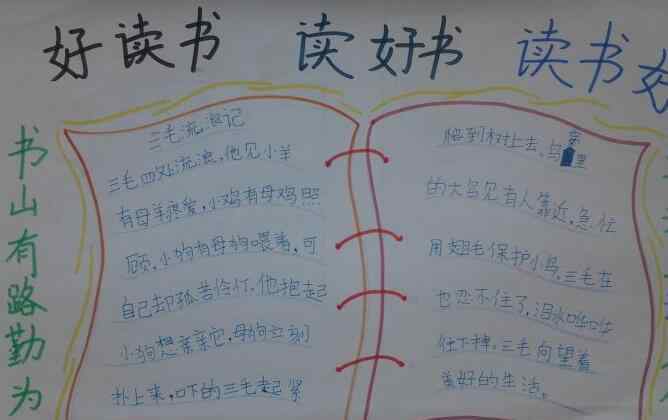 好读书 读好书 读书好
书山有路勤为
三毛流浪记
三毛四处流浪,他见小羊
有母羊疼爱,小鸡有母鸡照
顾,小狗有母狗喂养,可
自己却孤苦伶仃,他抱起
小狗想亲亲它,母狗立刻
扑上来,吓的三毛赶紧
爬到树上去,鸟窝里
的大鸟见有人靠近,急忙
用翅毛保护小鸟,三毛在
也忍不住了,泪水哗哗
往下掉。三毛向望着
美好的生活。